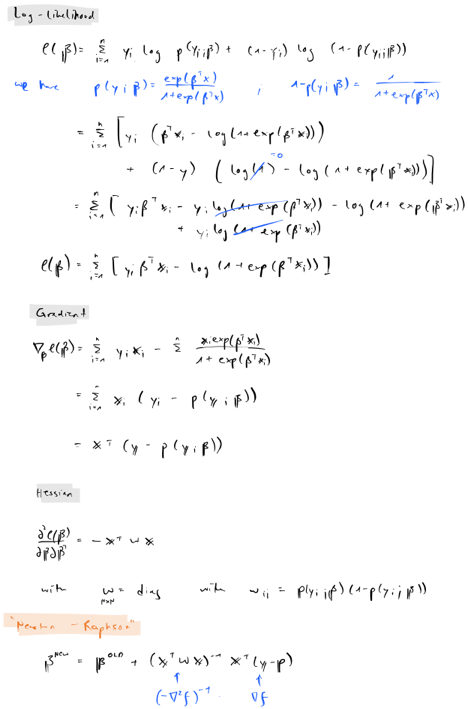 Log-likelihood
ℓ(β) = Σ_{i=1}^{n} y_i log p(y_i;β) + (1-y_i) log (1-p(y_i;β))
we have p(y;β) = exp(β^T x) / (1+exp(β^T x)) ; 1-p(y;β) = 1 / (1+exp(β^T x))
= Σ_{i=1}^{n} [ y_i (β^T x_i - log(1+exp(β^T x_i)))
+ (1-y) (log(1) =0 - log(1+exp(β^T x_i))) ]
= Σ_{i=1}^{n} [ y_i β^T x_i - y_i log(1+exp(β^T x_i)) - log(1+exp(β^T x_i))
+ y_i log(1+exp(β^T x_i))
ℓ(β) = Σ_{i=1}^{n} [ y_i β^T x_i - log(1+exp(β^T x_i)) ]
Gradient
∇_β ℓ(β) = Σ_{i=1}^{n} y_i x_i - Σ x_i exp(β^T x_i) / (1+exp(β^T x_i))
= Σ_{i=1}^{n} x_i (y_i - p(y;β))
= X^T (y - p(y;β))
Hessian
∂²ℓ(β) / ∂β∂β^T = -X^T W X
with W n×n = diag with w_ii = p(y_i;β)(1-p(y_i;β))
"Newton-Raphson"
β^NEW = β^OLD + (X^T W X)^-1 X^T (y-p)
↑ ↑
(-∇²f)^-1 ∇f